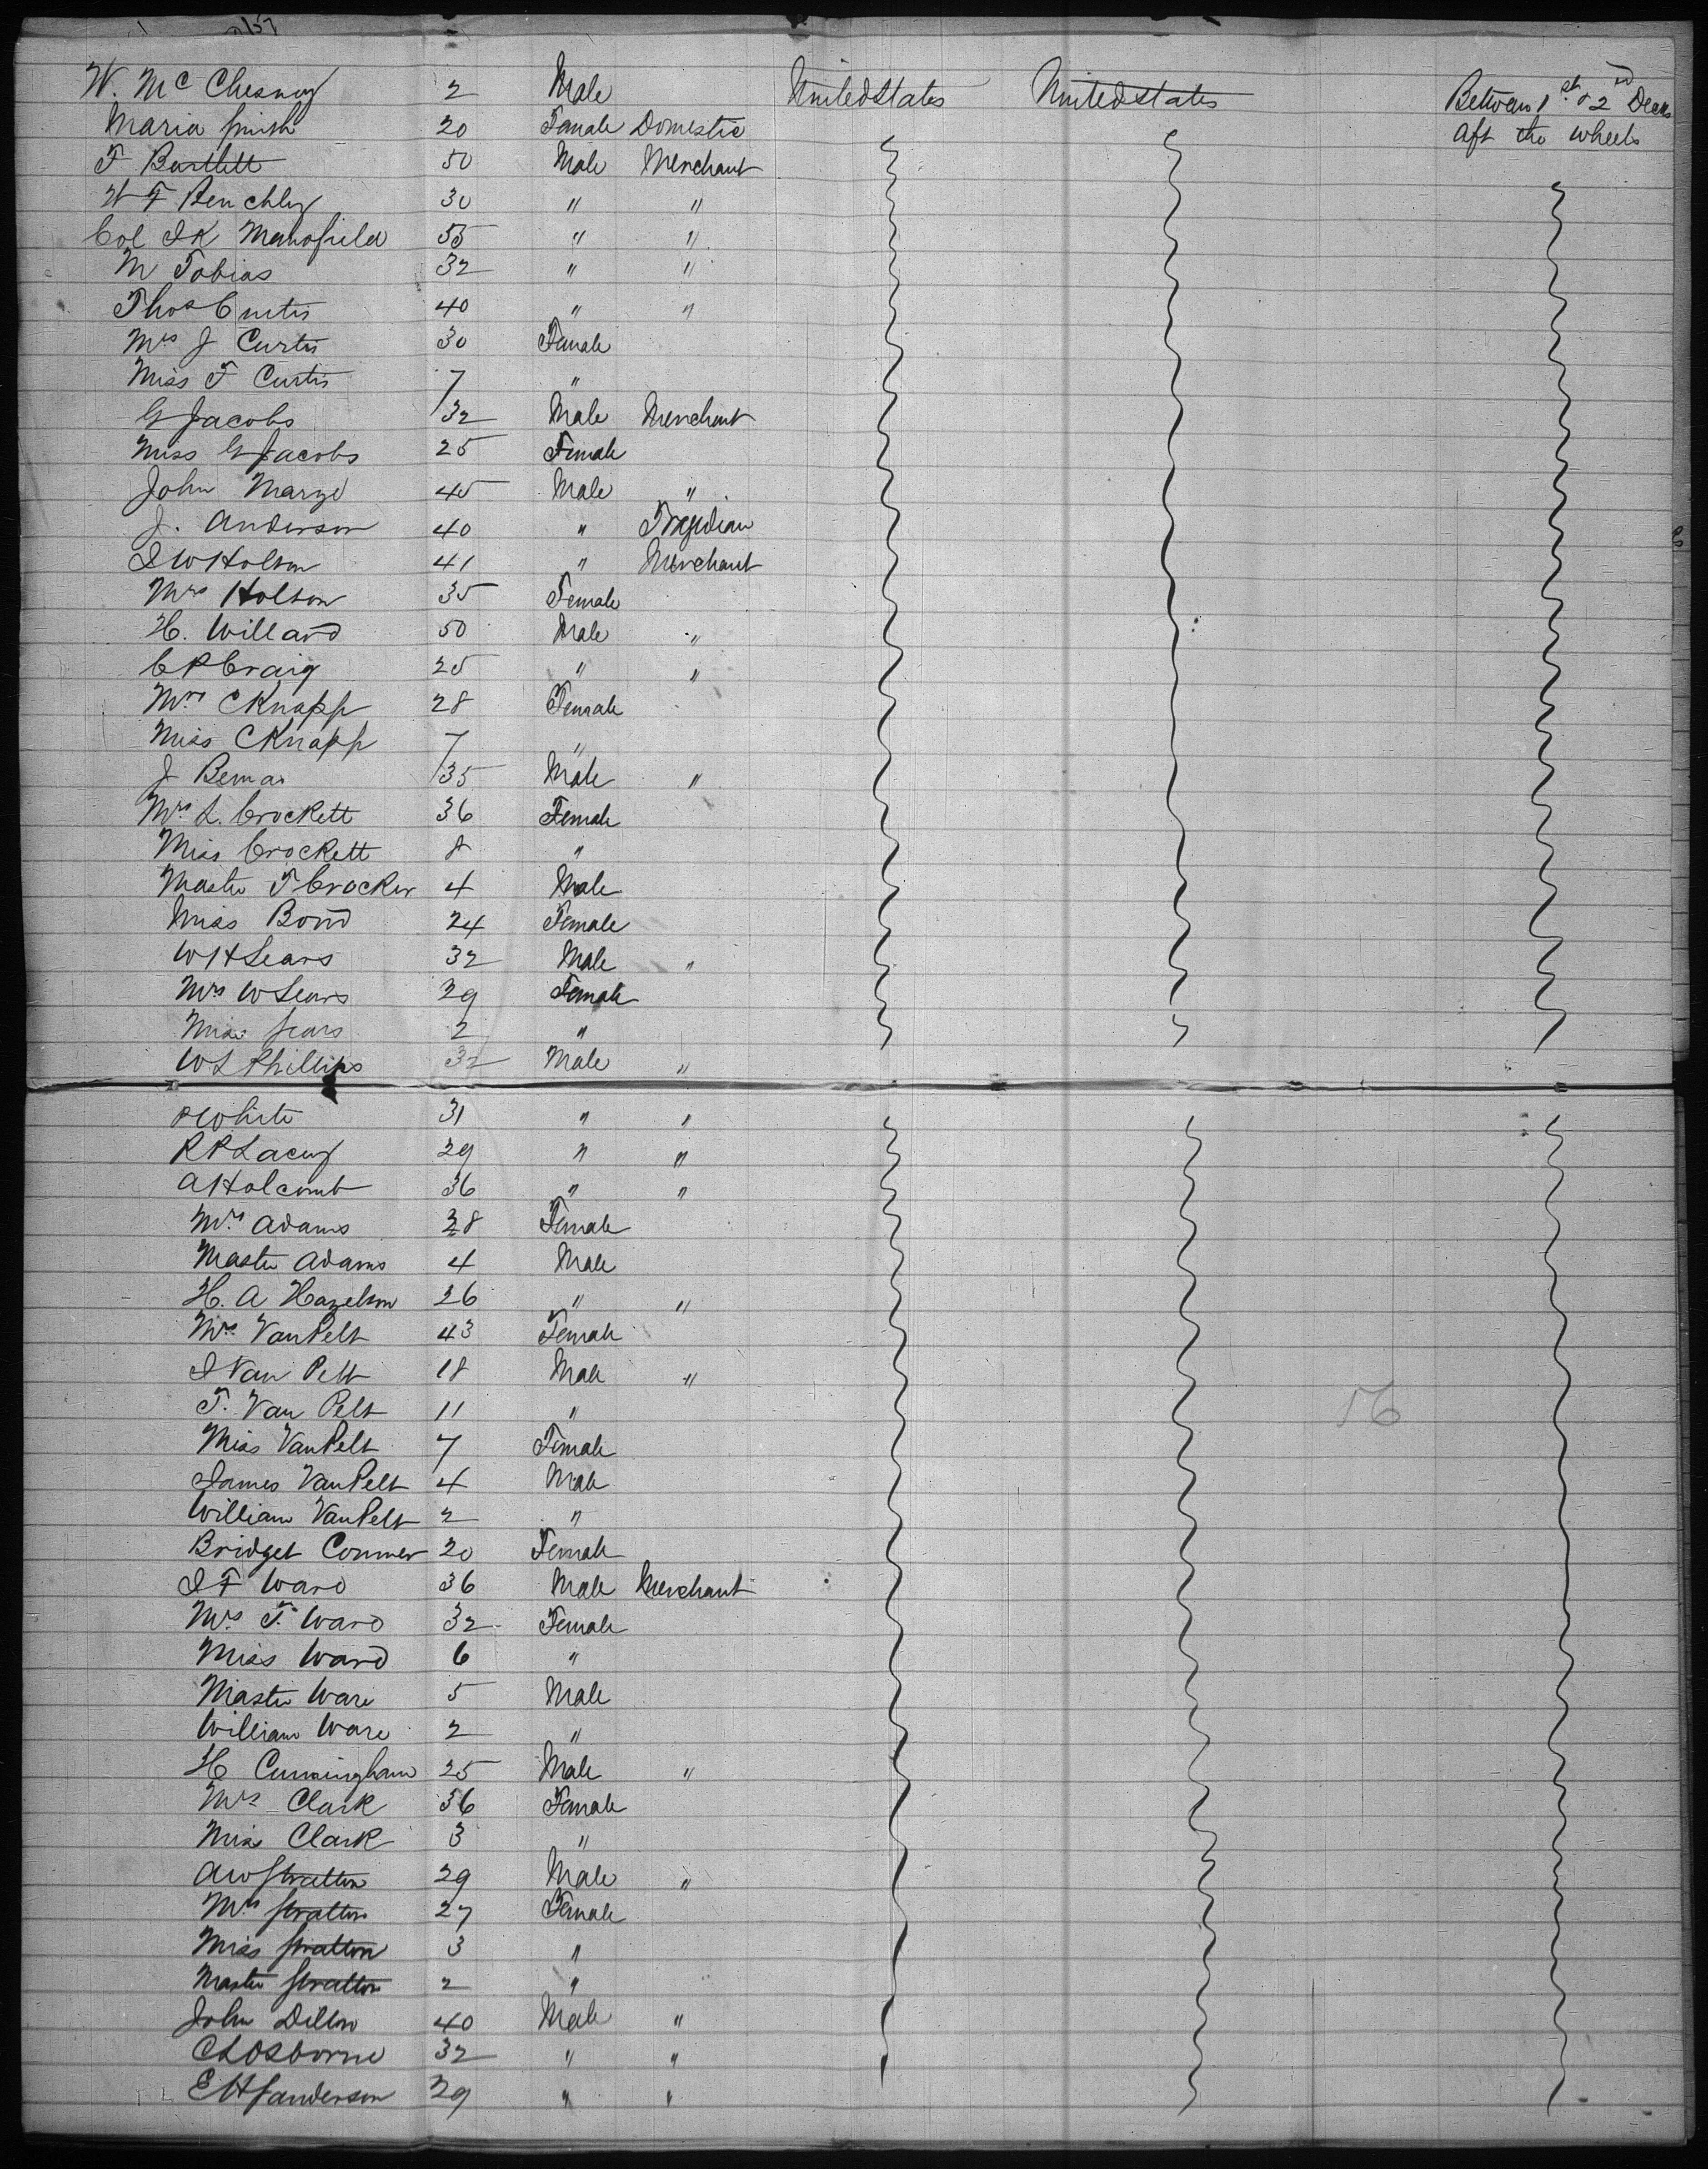 W. Mc Chesney 2 Male United States United States Between 1st & 2nd Decks
Maria Smith 20 Female Domestic aft the wheels
F Bartlett 50 Male Merchant
W F Benchley 30 " "
Col I K Mansfield 55 " "
M Tobias 32 " "
Thos Curtis 40 " "
Mrs J Curtis 30 Female
Miss F Curtis 7 "
G Jacobs 32 Male Merchant
Miss G Jacobs 25 Female
John Marze 45 Male "
J. Anderson 40 " Tragedian
I W Holson 41 " Merchant
Mrs Holson 35 Female
H. Willard 50 Male "
C P Craig 25 " "
Mrs C Knapp 28 Female
Miss C Knapp 7 "
J Bemar 35 Male "
Mrs L. Crockett 36 Female
Miss Crockett 8 "
Master T Crocker 4 Male
Miss Bond 24 Female
W H Sears 32 Male "
Mrs W Sears 29 Female
Miss Sears 2 "
W L Phillips 32 Male "
White 31 " "
R R Lacey 29 " "
A Holcomb 36 " "
Mrs Adams 28 Female
Master Adams 4 Male
H. A Hazelson 26 " "
Mrs Van Pelt 43 Female
I Van Pelt 18 Male "
T. Van Pelt 11 " 56
Miss Van Pelt 7 Female
James Van Pelt 4 Male
William Van Pelt 2 "
Bridget Conner 20 Female
I F Ward 36 Male Merchant
Mrs F. Ward 32 Female
Miss Ward 6 "
Master Ware 5 Male
William Ware 2 "
H Cunningham 25 Male "
Mrs Clark 56 Female
Miss Clark 3 "
A W Stratton 29 Male "
Mrs Stratton 27 Female
Miss Stratton 3 "
Master Stratton 2 "
John Dillon 40 Male "
C L Osborne 32 " "
E H Sanderson 29 " "